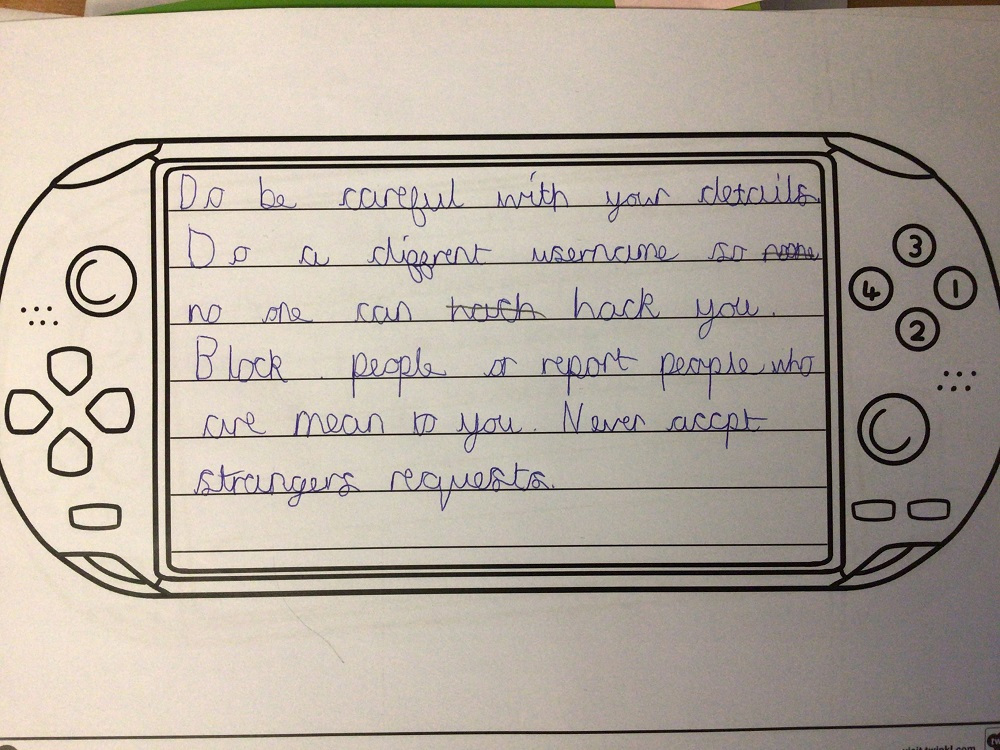 Do be careful with your details.
Do a different username so
no one can hack you.
Block people or report people who
are mean to you. Never accpt
strangers requests.
3
4 1
2
visit twinkl.com